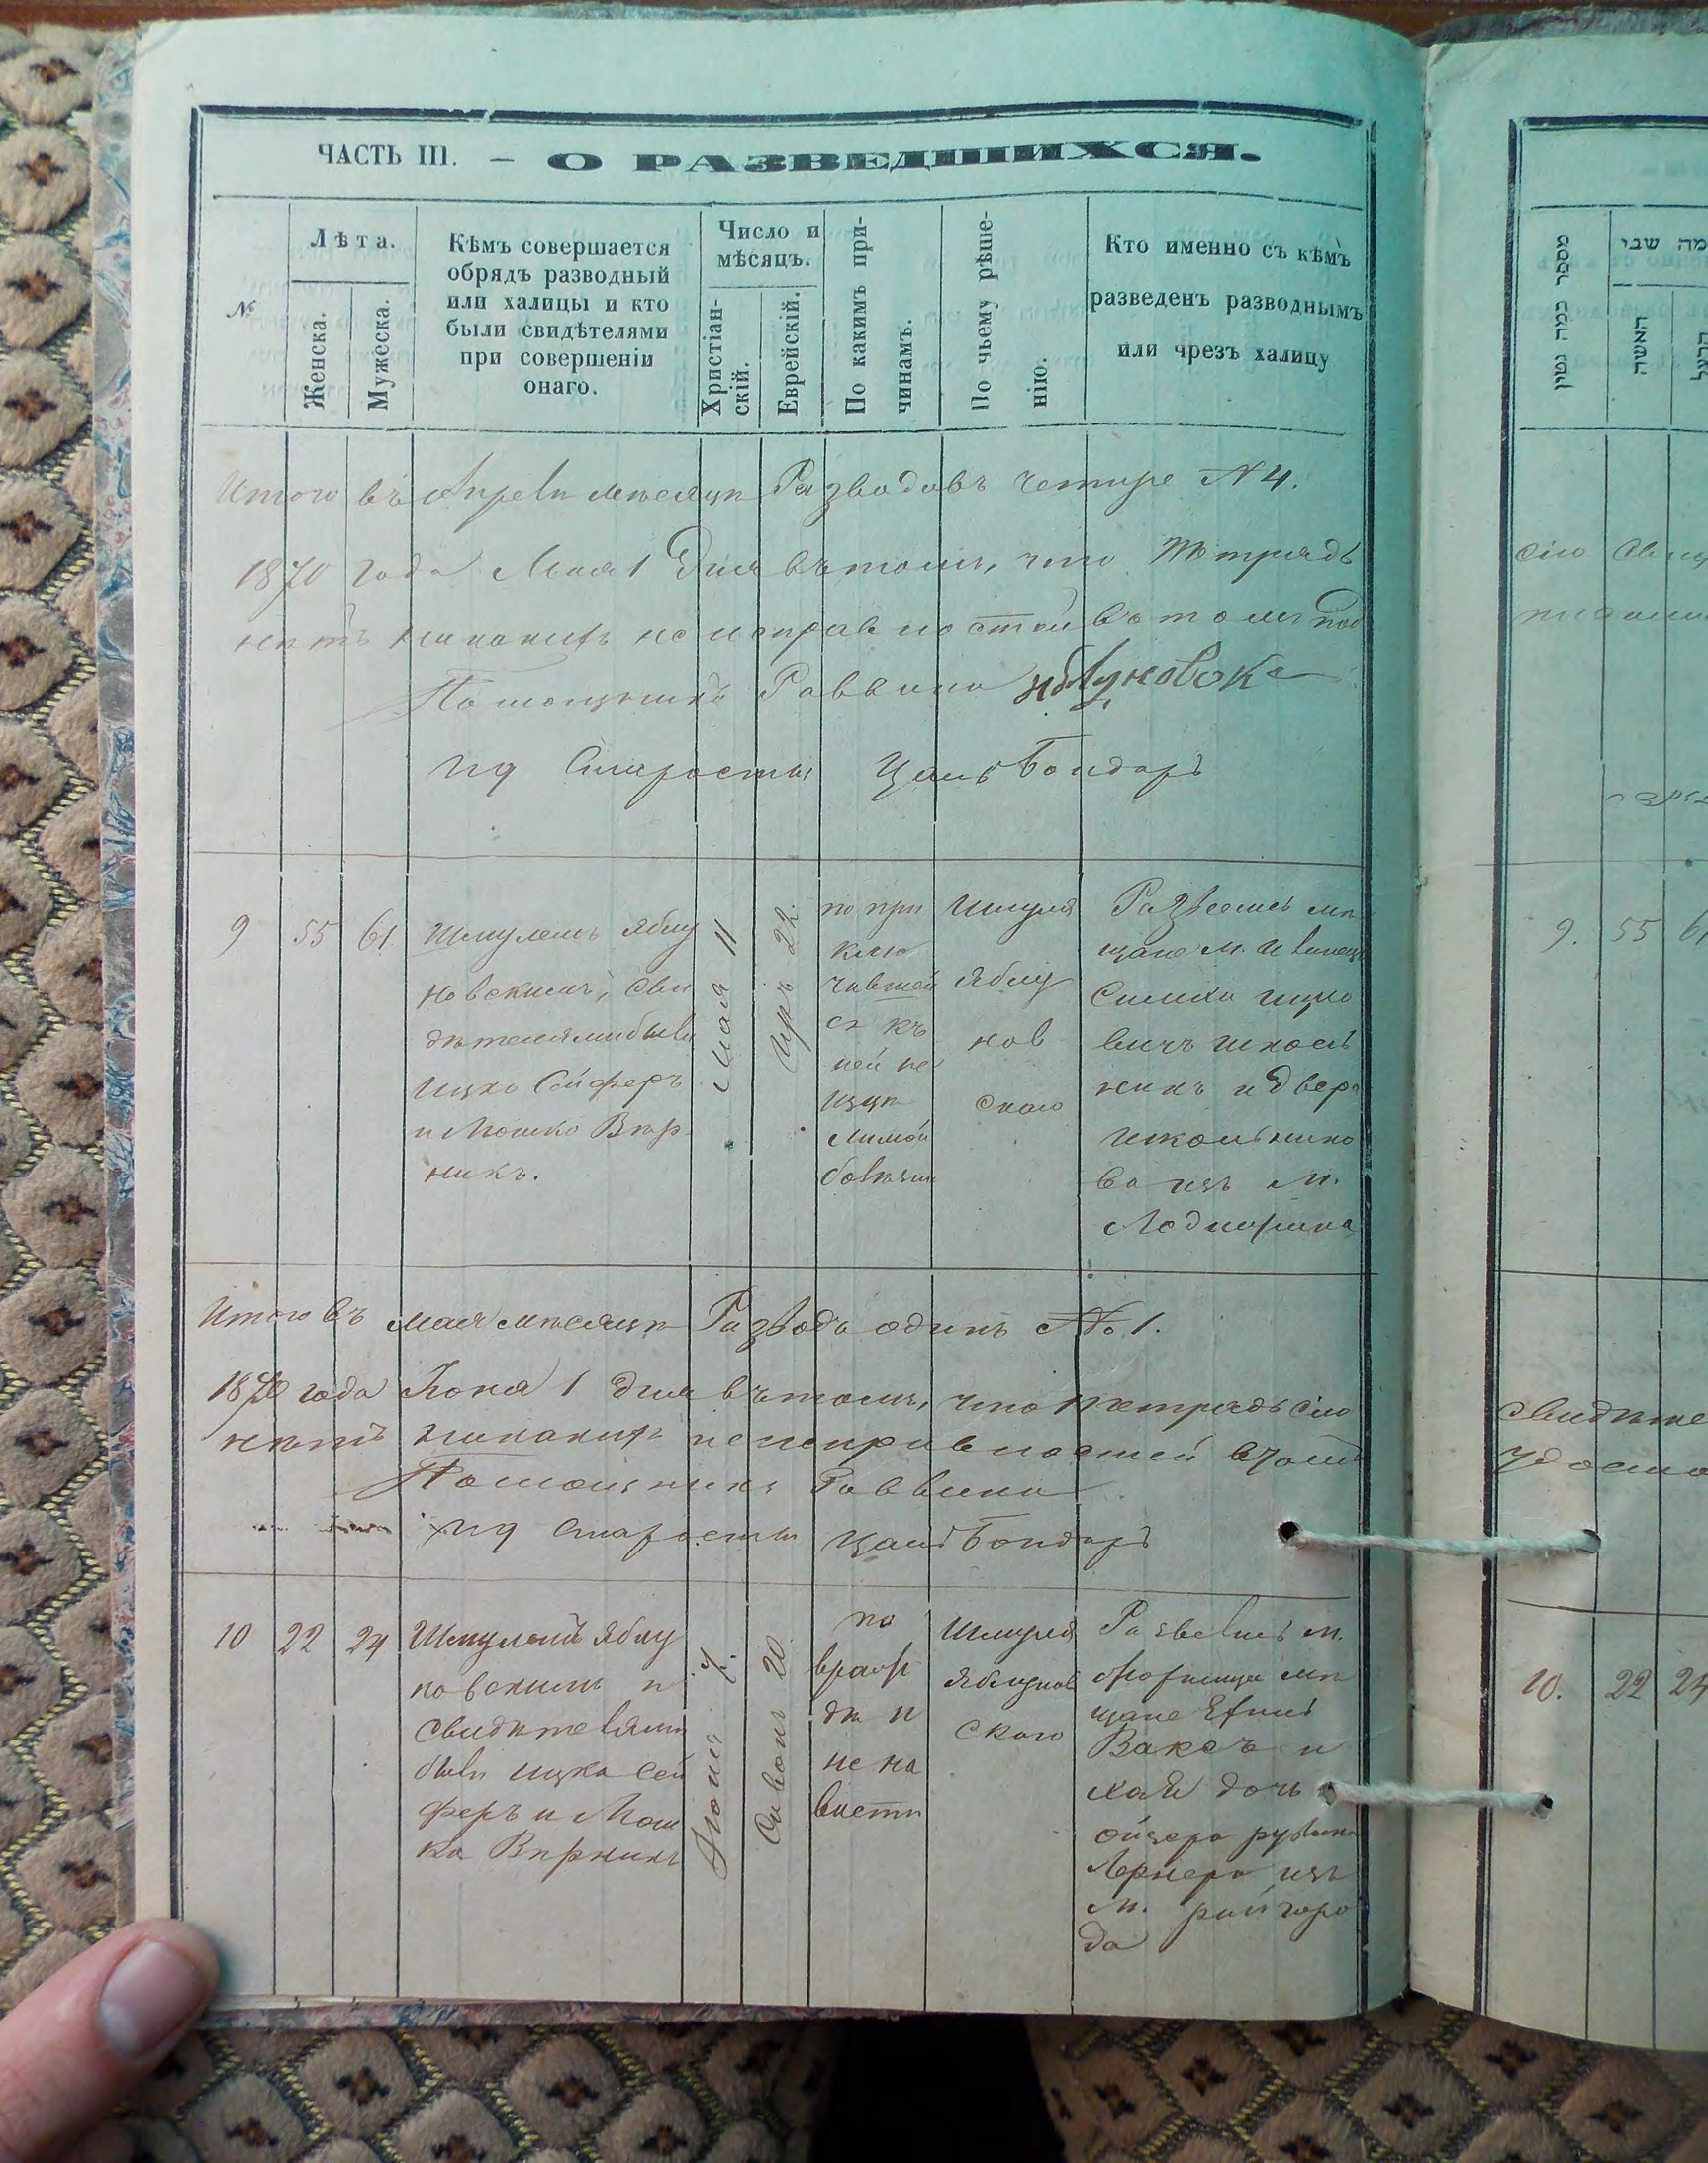 ЧАСТЬ III. — О РАЗВЕДШИХСЯ.
№
Лѣта.
Женска.
Мужеска.
Кѣмъ совершается
обрядъ разводный
или халицы и кто
были свидѣтелями
при совершеніи
онаго.
Число и
мѣсяцъ.
Христіан-
скій.
Еврейскій.
По какимъ при-
чинамъ.
По чьему рѣше-
нію.
Кто именно съ кѣмъ
разведенъ разводнымъ
или чрезъ халицу
Итого въ Апрели месяцѣ Разводовъ четире N 4.
1870 года Мая 1 Дня въ томъ, что тетрадѣ
нѣтъ никакихъ неисправностей въ томъ
Помощникъ Раввина
ИД Старосты Цаль Бондарь
9
55
61.
Шмулемъ Яблу
новскимъ, сви
дѣтелями были
Ицко Сойферъ
и Мошко Вѣр
никъ.
Мая 11
Иръ 22.
по при
клю
чившей
ся къ
ней не
изцѣ
лимой
болѣзни
Шмуля
Яблу
нов
скаго
Развелись мѣ
щане м.
Симха Ицко
вичъ Школь
никъ и Двера
Школьнико
ва изъ м.
Итого въ мая месяцѣ Разводъ одинъ No 1.
1870 года Юня 1 дня въ томъ, что въ тетрадѣ сію
нѣтъ никакихъ неисправностей въ томъ
Помощникъ Раввина
ИД Старосты Цаль Бондарь
10
22
24
Шмулемъ Яблу
новскимъ и
свидѣтелями
были Ицка Сой
феръ и Мош
ка Вѣрникъ
Июня 7.
Сивонъ 20
по
враж
дѣ и
нена
висти
Шмуля
Яблунов
скаго
Развелись м.
мѣ
щане
Ваксъ и
Хая дочь
Ойзера
Лернера изъ
м. Райгоро
да
מספר כמה גטין
מה שני
האשה
הבעל
сію
9.
55
61
10.
22
24